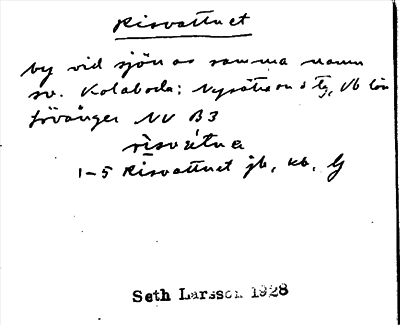 Risvattnet
by vid sjön av samma namn
sv. Kolaboda; Nysätra och tg, Vb län
Lövånger NV B3
risvátnə
1-5 Risvattnet jb, kb, G
Seth Larsson 1928